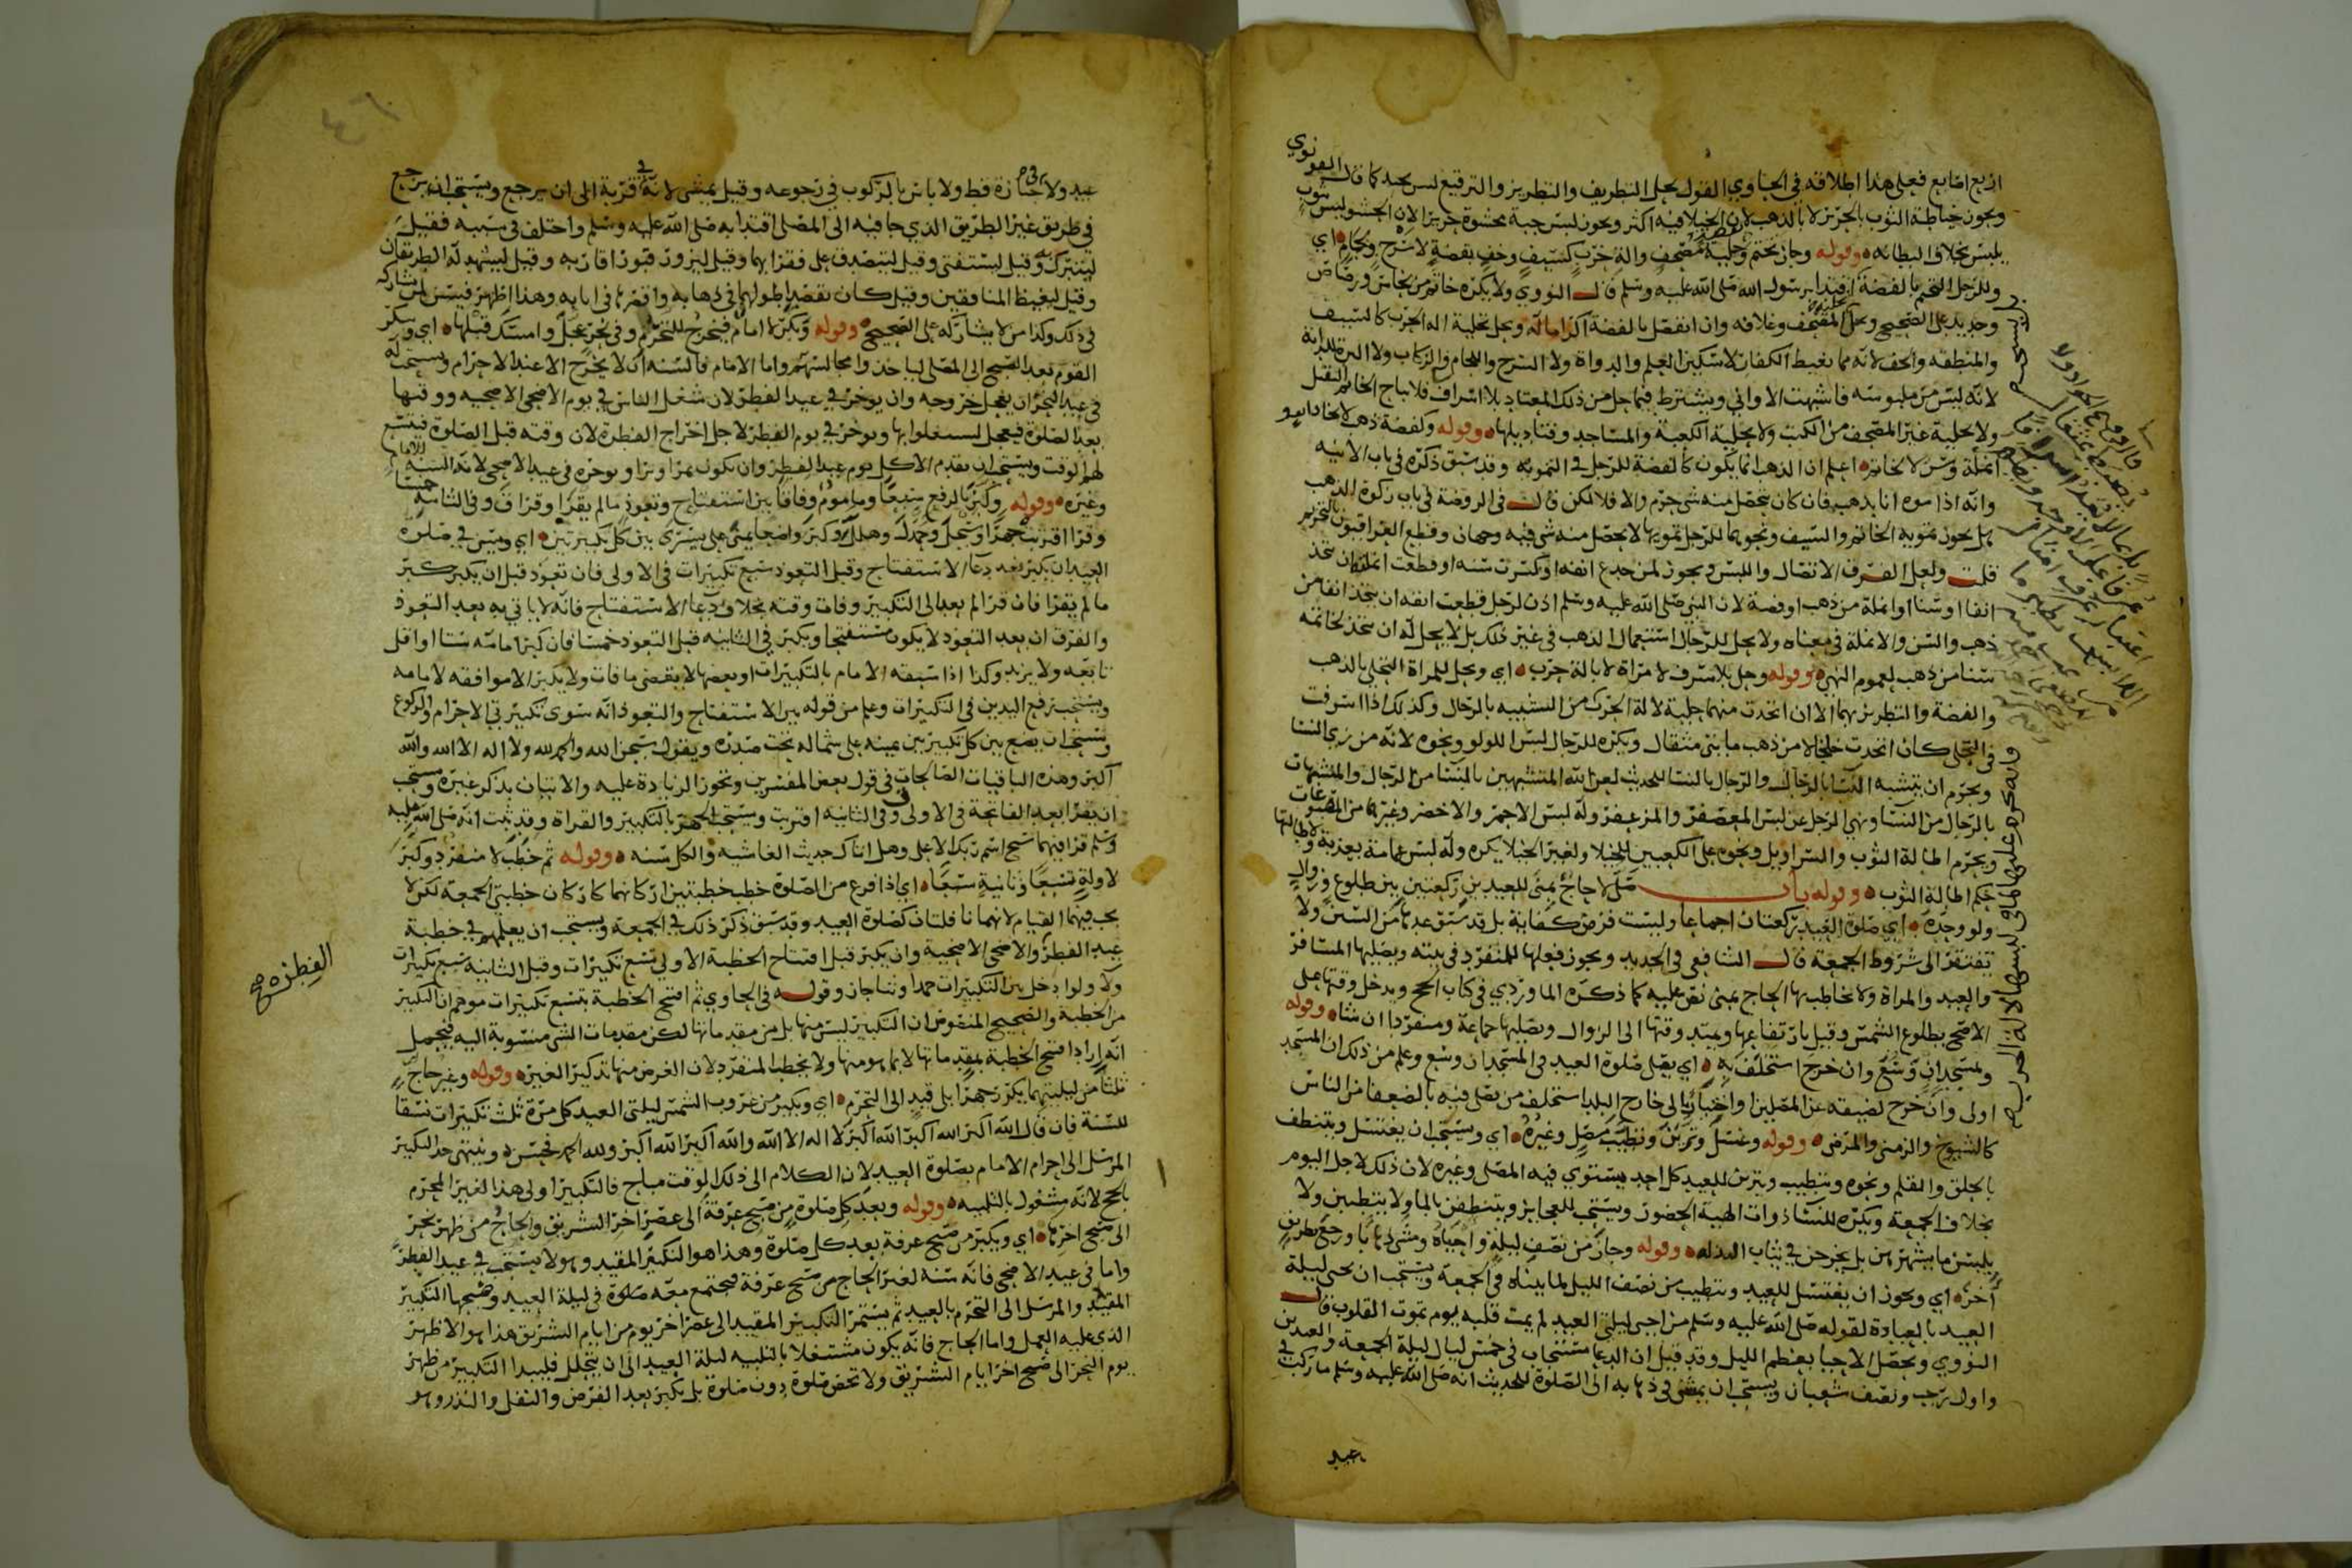 اربع اصابع فعلى هذا اطلاقه في الحاوي القول بحل التطريف والتطريز والترقيع ليس بجيد كما قال القونوي
ويجوز خياطة الثوب بالحرير لا بالذهب لان الخيلا فيه اكثر ويجوز لبس جبة محشوة حريرا لان الحشو ليس ثوب
يلبس بخلاف البطانه وقوله وجاز تختم وحلية مصحف والة حرب كسيف وخف بفضة لا سرج ولجام اي
وللرجل التختم بالفضة اقتدا برسول الله صلى الله عليه وسلم قال النووي ولا يكره خاتم من نحاس ورصاص
وحديد على الصحيح وغلافه وان انفصل بالفضة اكراما له ويحل تحلية اله الحرب كالسيف
والمنطقه والخف لانه مما يغيظ الكفار لا سكين القلم والدواة ولا السرج واللجام والركاب ولا البرة للدابة
لانه ليس من ملبوسه فاشبهت الاواني ويشترط فيما حل من ذلك المعتاد بلا اسراف فلا يباح الخاتم الثقيل
ولا تحلية غير المصحف من الكتب ولا تحلية الكعبة والمساجد وقناديلها وقوله وكفضة ذهب
انملة وسن لا خاتم اعلم ان الذهب انما يكون كالفضة للرجل في التمويه وقد سبق ذكره في باب الانيه
وانه اذا موه انا بذهب فان كان يتحصل منه شي حرم والا فلا لكن قال في الروضة في باب زكوة الذهب
هل يجوز تمويه الخاتم والسيف ونحوهما للرجل تمويها لا يحصل منه شي فيه وجهان وقطع العراقيون بالتحريم
قلت ولعل الفرق الاتصال واللبس ويجوز لمن جدع انفه او كسرت سنه او قطعت انملته ان يتخذ
انفا او سنا او انملة من ذهب او فضة لان النبي صلى الله عليه وسلم اذن لرجل قطعت انفه ان يتخذ انفا من
ذهب والسن والانملة في معناه ولا يحل للرجال استعمال الذهب في غير ذلك بل لا يحل له ان يتخذ لخاتمه
سنا من ذهب لعموم النهي وقوله وحل بلا سرف لامراة لا بالة حرب اي ويحل للمراة التحلي بالذهب
والفضة والتطريز بهما الا ان اتخذت منهما حلية لالة الحرب من التشبيه بالرجال وكذلك اذا اسرفت
في التحلي كان اتخذت خلخالا من ذهب مايتي مثقال ويكره للرجال لبس اللولو ونحوه لانه من زي النسا
ويحرم ان يتشبه النسا بالرجال والرجال بالنسا للحديث لعن الله المتشبهين بالنسا من الرجال والمتشبهات
بالرجال من النسا ونهي الرجل عن لبس المعصفر والمزعفر وله لبس الاحمر والاخضر وغيرهما من المصبوغات
ويحرم اطالة الثوب والسراويل ونحوه على الكعبين للخيلا ولغير الخيلا يكره وله لبس عمامة بعذبة ولاطالتها
حكم اطالة الثوب وقوله باب صلى لا حاج بمنى للعيدين ركعتين بين طلوع وزوال
ولو وحده اي صلوة العيد ركعتان اجماعا وليست فرض كفاية بل قد سبق عدها من السنن ولا
تفتقر الى شروط الجمعة قال الشافعي في الجديد ويجوز فعلها للمنفرد في بيته ويصليها المسافر
والعبد والمراة ولا يخاطب بها الحاج بمنى نص عليه كما ذكره الماوردي في كتاب الحج ويدخل وقتها على
الاصح بطلوع الشمس وقيل بارتفاعها ويمتد وقتها الى الزوال ويصليها جماعة ومنفردا ان شا وقوله
وبمسجد ان وسع وان خرج استخلف به اي يصلي صلوة العيد في المسجد ان وسع وعلم من ذلك ان المسجد
اولى وان خرج لضيقه عن المصلين الى خارج البلد استخلف من يصلي فيه بالضعفا من الناس
كالشيوخ والزمنى والمرضى وقوله وغسل وتزين وتطيب مصل وغيره اي ويستحب ان يغتسل ويتنظف
بالحلق والقلم ونحوه ويتطيب ويتزين للعيد كل احد يستوي فيه المصلي وغيره لان ذلك لاجل اليوم
بخلاف الجمعة ويكره للنسا ذوات الهيئة الحضور ويستحب للعجايز ويتنظفن بالما ولا يتطيبن ولا
يلبسن ما يشهرهن بل يخرجن في ثياب البذله وقوله وجاز من نصف ليلة واحياه ومشى ذهابا ورجع بطريق
اخر اي ويجوز ان يغتسل للعيد ويتطيب من نصف الليل لما بيناه في الجمعة ويستحب ان يحيي ليلة
العيد بالعبادة لقوله صلى الله عليه وسلم من احيى ليلتي العيد لم يمت قلبه يوم تموت القلوب قال
النووي ويحصل الاحيا بمعظم الليل وقد قيل ان الدعا مستجاب في خمس ليال ليلة الجمعة والعيدين
واول رجب ونصف شعبان ويستحب ان يمشي في ذهابه الى الصلوة للحديث انه صلى الله عليه وسلم ما ركب في
عيد
٤٦
عيد ولا جنازة قط ولا باس بالركوب في رجوعه وقيل يمشي لانه في قربة الى ان يرجع ويستحب ان يرجع
في طريق غير الطريق الذي جا فيه الى المصلى اقتدا به صلى الله عليه وسلم واختلف في سببه فقيل
ليتبرك به وقيل ليستفتى وقيل ليتصدق على فقرايهما وقيل ليزور قبور اقاربه وقيل ليشهد له الطريقان
وقيل ليغيظ المنافقين وقيل كان يقصد اطولهما في ذهابه واقصرهما في ايابه وهذا اظهر فيسن لمن شاركه
في ذلك وكذا من لا يشاركه على الصحيح وقوله وبكر لا امام فيخرج للتحرم وفي نحر عجل وامسك قبلها اي ويبكر
القوم بعد الصبح الى المصلى لياخذوا مجالسهم واما الامام فالسنه ان لا يخرج الا عند الاحرام ويستحب له
في عيد النحر ان يعجل خروجه وان يوخر في عيد الفطر لان شغل الناس في يوم الاضحى الاضحيه ووقتها
بعد الصلوة فيعجل ليشتغلوا بها ويوخر في يوم الفطر لاجل اخراج الفطرة لان وقته قبل الصلوة فيتسع
لهم الوقت ويستحب ان يقدم الاكل يوم عيد الفطر وان يكون تمرا وترا ويوخره في عيد الاضحى لانه السنه
وغيره وقوله وكبر بالرفع سبعا وماموم وفاقا بين استفتاح وتعوذ ما لم يقرا وقرا ق وفي الثانية خمسا
وقرا اقتربت جهرا وسبحل وحمدل وهلل وكبر واضعا يمنى على يسرى بين كل تكبيرتين اي ويسن في صلوة
العيد ان يكبر بعد دعا الاستفتاح وقبل التعوذ سبع تكبيرات في الاولى فان تعوذ قبل ان يكبر كبر
ما لم يقرا فان قرا لم يعد الى التكبير وفات وقته بخلاف دعا الاستفتاح فانه لا ياتي به بعد التعوذ
والفرق ان بعد التعوذ لا يكون مستفتحا ويكبر في الثانيه قبل التعوذ خمسا فان كبر امامه ستا او اقل
تابعه ولا يزيد وكذا اذا سبقه الامام بالتكبيرات او بعضها لا يقضي ما فات ولا يكبر الا موافقه لامامه
ويستحب رفع اليدين في التكبيرات وعلم من قوله بين الاستفتاح والتعوذ انه سوى تكبيرتي الاحرام والركوع
ويستحب ان يضع بين كل تكبيرتين يمينه على شماله تحت صدره ويقول سبحن الله والحمد لله ولا اله الا الله والله
اكبر وهذه الباقيات الصالحات في قول بعض المفسرين وتجوز الزيادة عليه والاتيان بذكر غيره ويستحب
ان يقرا بعد الفاتحة في الاولى ق وفي الثانيه اقتربت ويستحب الجهر بالتكبير والقراة وقد ثبت انه صلى الله عليه
وسلم قرا فيهما سبح اسم ربك الاعلى وهل اتاك حديث الغاشيه والكل سنه وقوله ثم خطب لا منفرد وكبر
لاولة تسعا وثانية سبعا اي اذا فرغ من الصلوة خطب خطبتين اركانهما كاركان خطبتي الجمعة لكن لا
يجب فيهما القيام لانهما نافلتان كصلوة العيد وقد سبق ذكر ذلك في الجمعة ويستحب ان يعلمهم في خطبة
عيد الفطر والاضحى الاضحية وان يكبر قبل افتتاح الخطبة الاولى تسع تكبيرات وقبل الثانيه سبع تكبيرات
الفطره صح
ولا ولو ادخل بين التكبيرات حمدا وثنا جاز وقوله في الحاوي ثم افتتح الخطبة بتسع تكبيرات موهم ان التكبير
من الخطبة والصحيح المنصوص ان التكبير ليس منها بل من مقدماتها لكن مقدمات الشي منسوبة اليه فيحمل
انه اراد افتتح الخطبة بمقدماتها لا بما هو منها ولا يخطب المنفرد لان الغرض منها تذكير الغير وقوله وغير حاج
ثلثا من ليلتيهما يكرر جهرا بلا قيد الى التحرم اي ويكبر من غروب الشمس ليلتي العيد كل مرة ثلث تكبيرات نسقا
للسنة فان قال الله اكبر الله اكبر الله اكبر لا اله الا الله والله اكبر الله اكبر ولله الحمد فحسن وينتهي هذا التكبير
المرسل الى احرام الامام بصلوة العيد لان الكلام الى ذلك الوقت مباح فالتكبير اولى هذا لغير المحرم
بالحج لانه مشغول بالتلبيه وقوله وبعد كل صلوة من صبح عرفة الى عصر اخر التشريق والحاج من ظهر نحر
الى صبح اخرها اي ويكبر من صبح عرفة بعد كل صلوة وهذا هو التكبير المقيد وهو لا يستحب في عيد الفطر
واما في عيد الاضحى فانه سنه لغير الحاج من صبح عرفة فيجتمع معه صلوة في ليلة العيد وصبحها التكبير
المقيد والمرسل الى التحرم بالعيد ثم يستمر التكبير المقيد الى عصر اخر يوم من ايام التشريق هذا هو الاظهر
الذي عليه العمل واما الحاج فانه يكون مشتغلا بالتلبيه ليلة العيد الى ان يتحلل فليبدا التكبير من ظهر
يوم النحر الى صبح اخر ايام التشريق ولا تخص صلوة دون صلوة بل يكبر بعد الفرض والنفل والنذر وهو